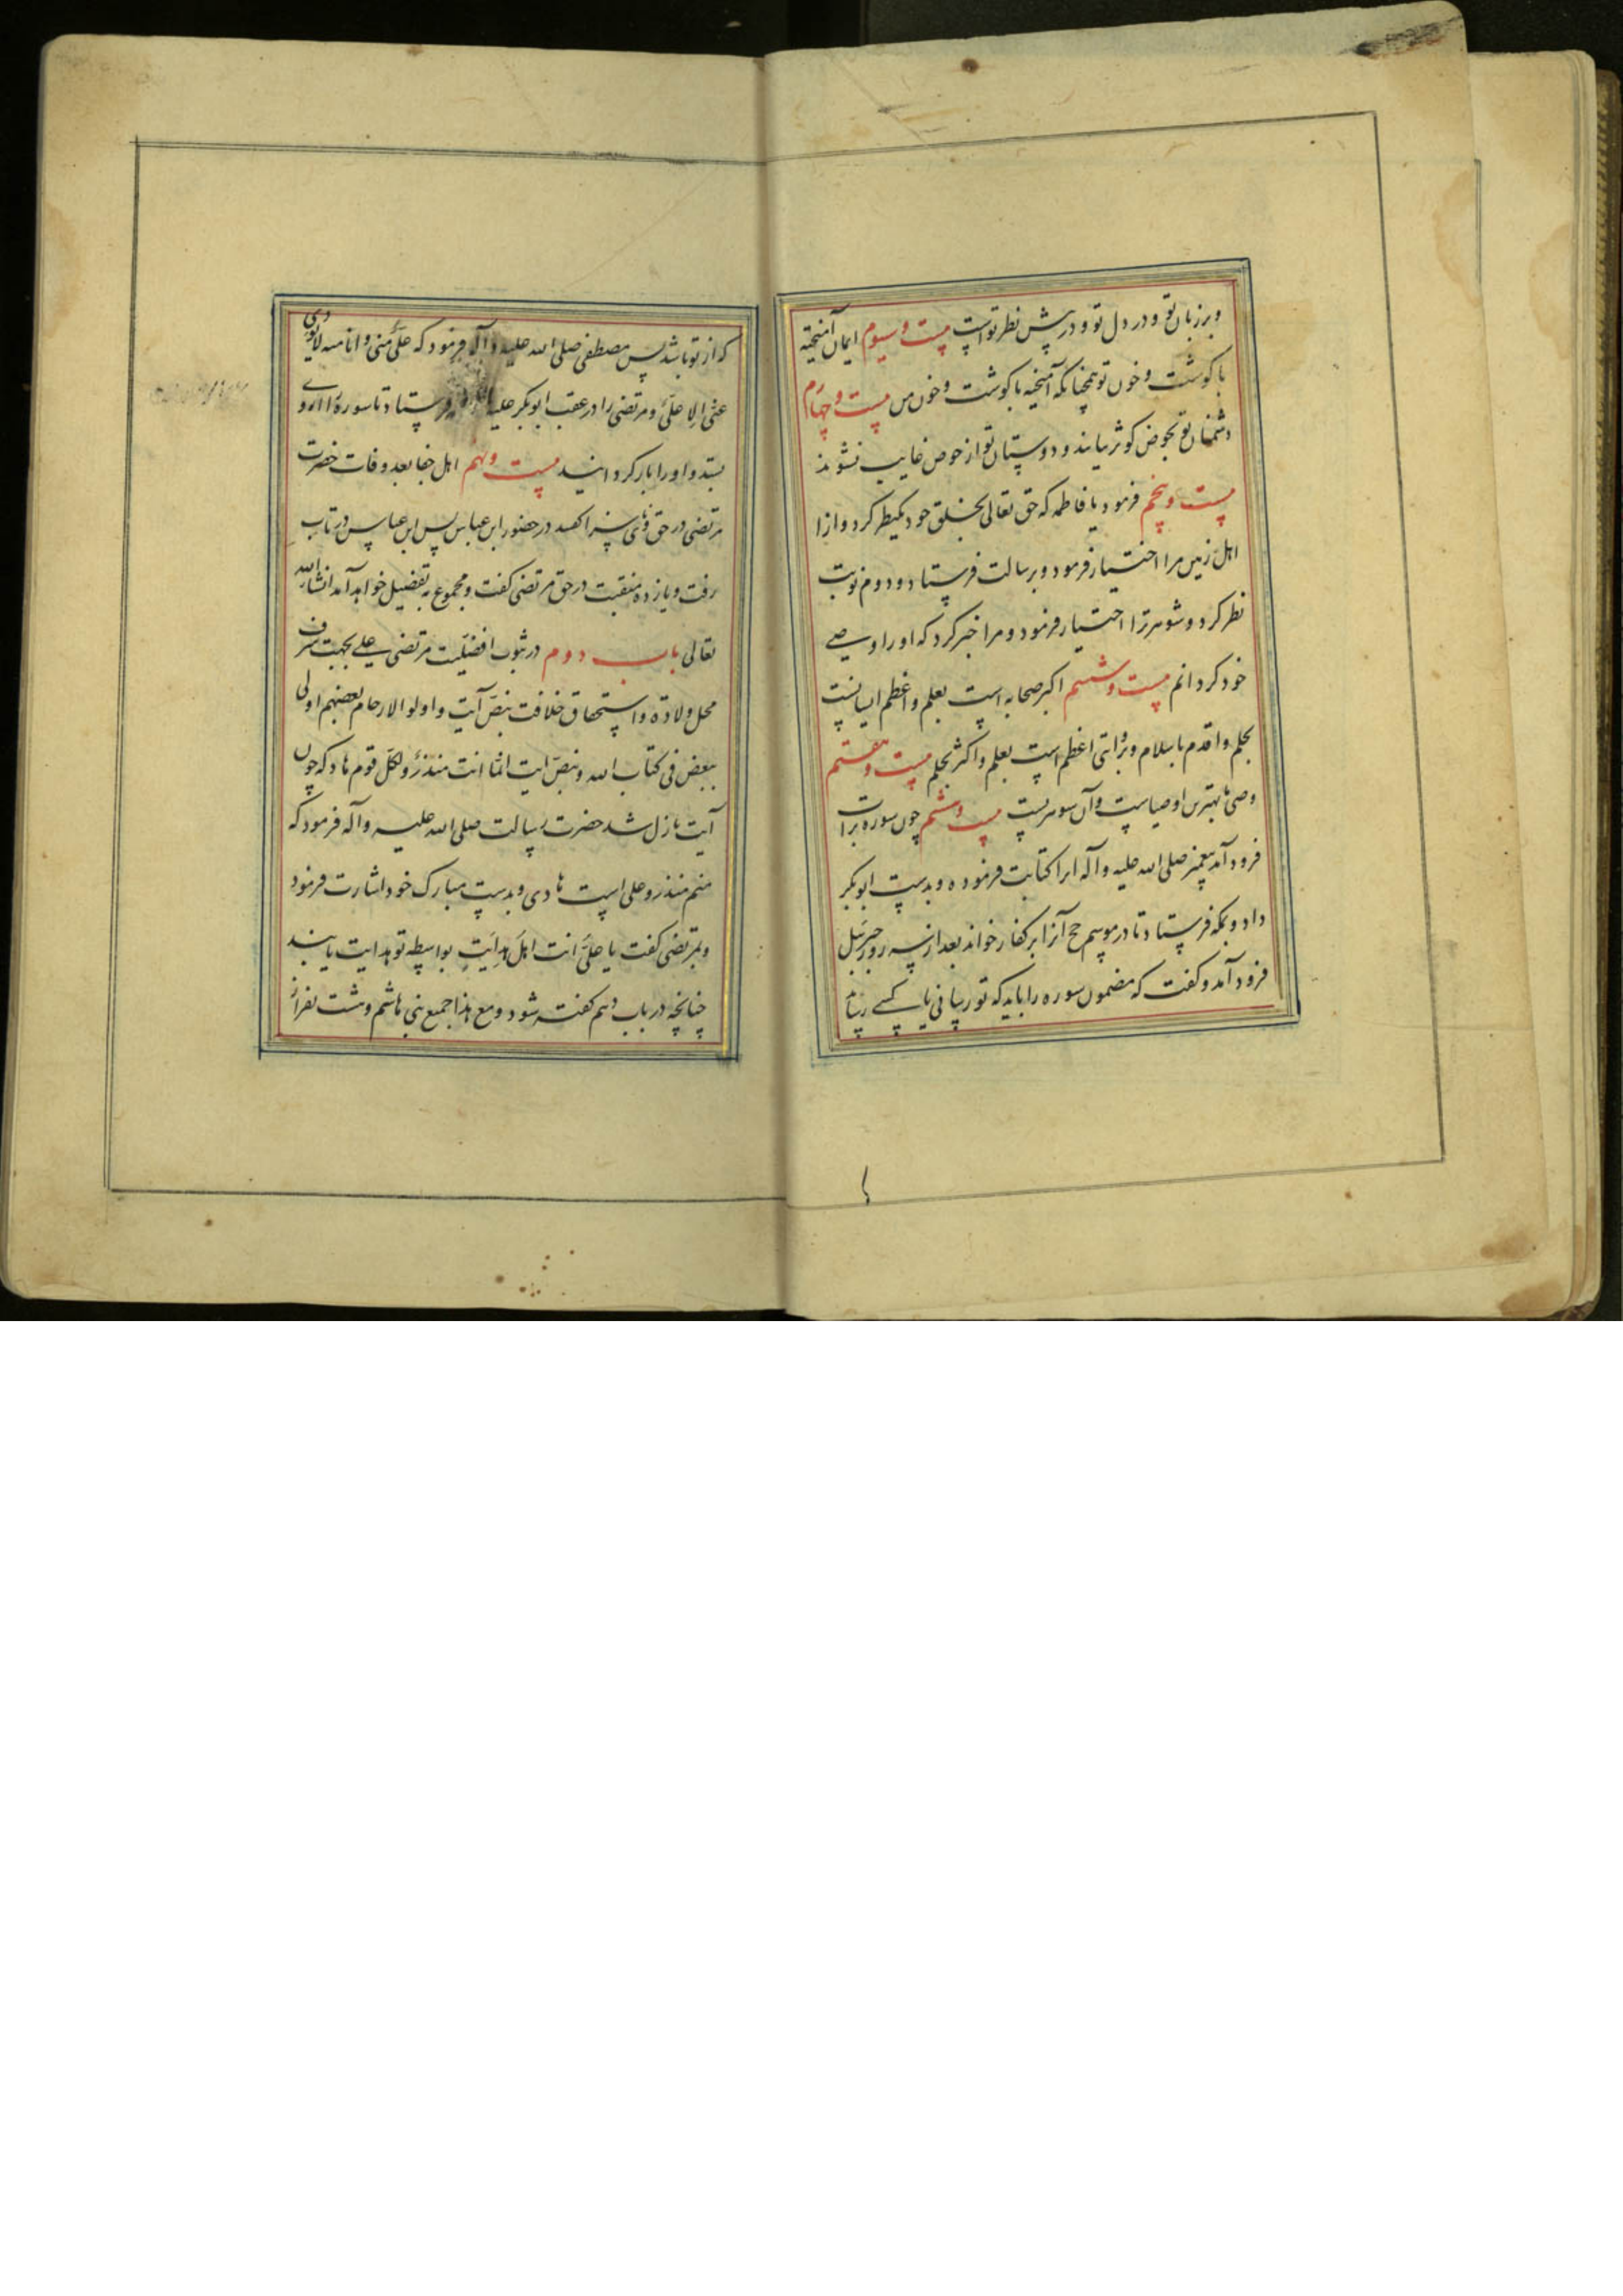 و بر زبان تو و در دل تو و در پیش نظر تو است بیست و سیوم ایمان آمیخته
با کوشت و خون تو همچنانکه آمیخته با کوشت و خون من بیست و چهارم
دشمنان تو بحوض کوثر نیایند و دوستان تو از حوض غایب نشوند
بیست و پنجم فرمود یا فاطمه که حق تعالی بخلق خود یکنظر کرد و از
اهل زمین مرا اختیار فرمود و برسالت فرستاد و دوم نوبت
نظر کرد و شوهر ترا اختیار فرمود و مرا خبر کرد که او را وصی
خود کردانم بیست و ششم اکبر صحابه است بعلم و اعظم ایشانست
بحلم و اقدم باسلام و بروایتی اعظم است بعلم و اکثر بحلم بیست و هفتم
وصی ما بهترین اوصیاست و آن شوهر تست بیست و هشتم چون سوره برات
فرود آمد پیغمبر صلی الله علیه و آله انرا کتابت فرموده و بدست ابوبکر
داد و بمکه فرستاد تا در موسم حج آنرا بر کفار خواند بعد از سه روز جبرئیل
فرود آمد و کفت که مضمون سوره را باید که تو رسانی یا کسی رساند
که از تو باشد پس مصطفی صلی الله علیه و آله فرمود که علی منی و انا منه لا یودی
عنی الا علی و مرتضی را در عقب ابوبکر علیه فرستاد تا سوره را از وی
بستد و او را باز کردانید بیست و نهم اهل جفا بعد وفات حضرت
مرتضی در حق وی سزا کفتند در حضور ابن عباس پس ابن عباس در تاب
رفت و یازده منقبت در حق مرتضی کفت و مجموع به تفصیل خواهد آمد انشاء الله
تعالی باب دوم در ثبوت افضلیت مرتضی علی بجهت شرف
محل ولادة و استحقاق خلافت بنص آیت و اولوا الارحام بعضهم اولی
ببعض فی کتاب الله و بنص ایت انما انت منذر و لکل قوم هاد که چون
آیت نازل شد حضرت رسالت صلی الله علیه و آله فرمود که
منم منذر و علی است هادی و بدست مبارک خود اشارت فرمود
و بمرتضی کفت یا علی انت اهل هدایت بواسطه تو هدایت یابند
چنانچه در باب دهم کفته شود و مع هذا جمیع بنی هاشم و شت نفر از